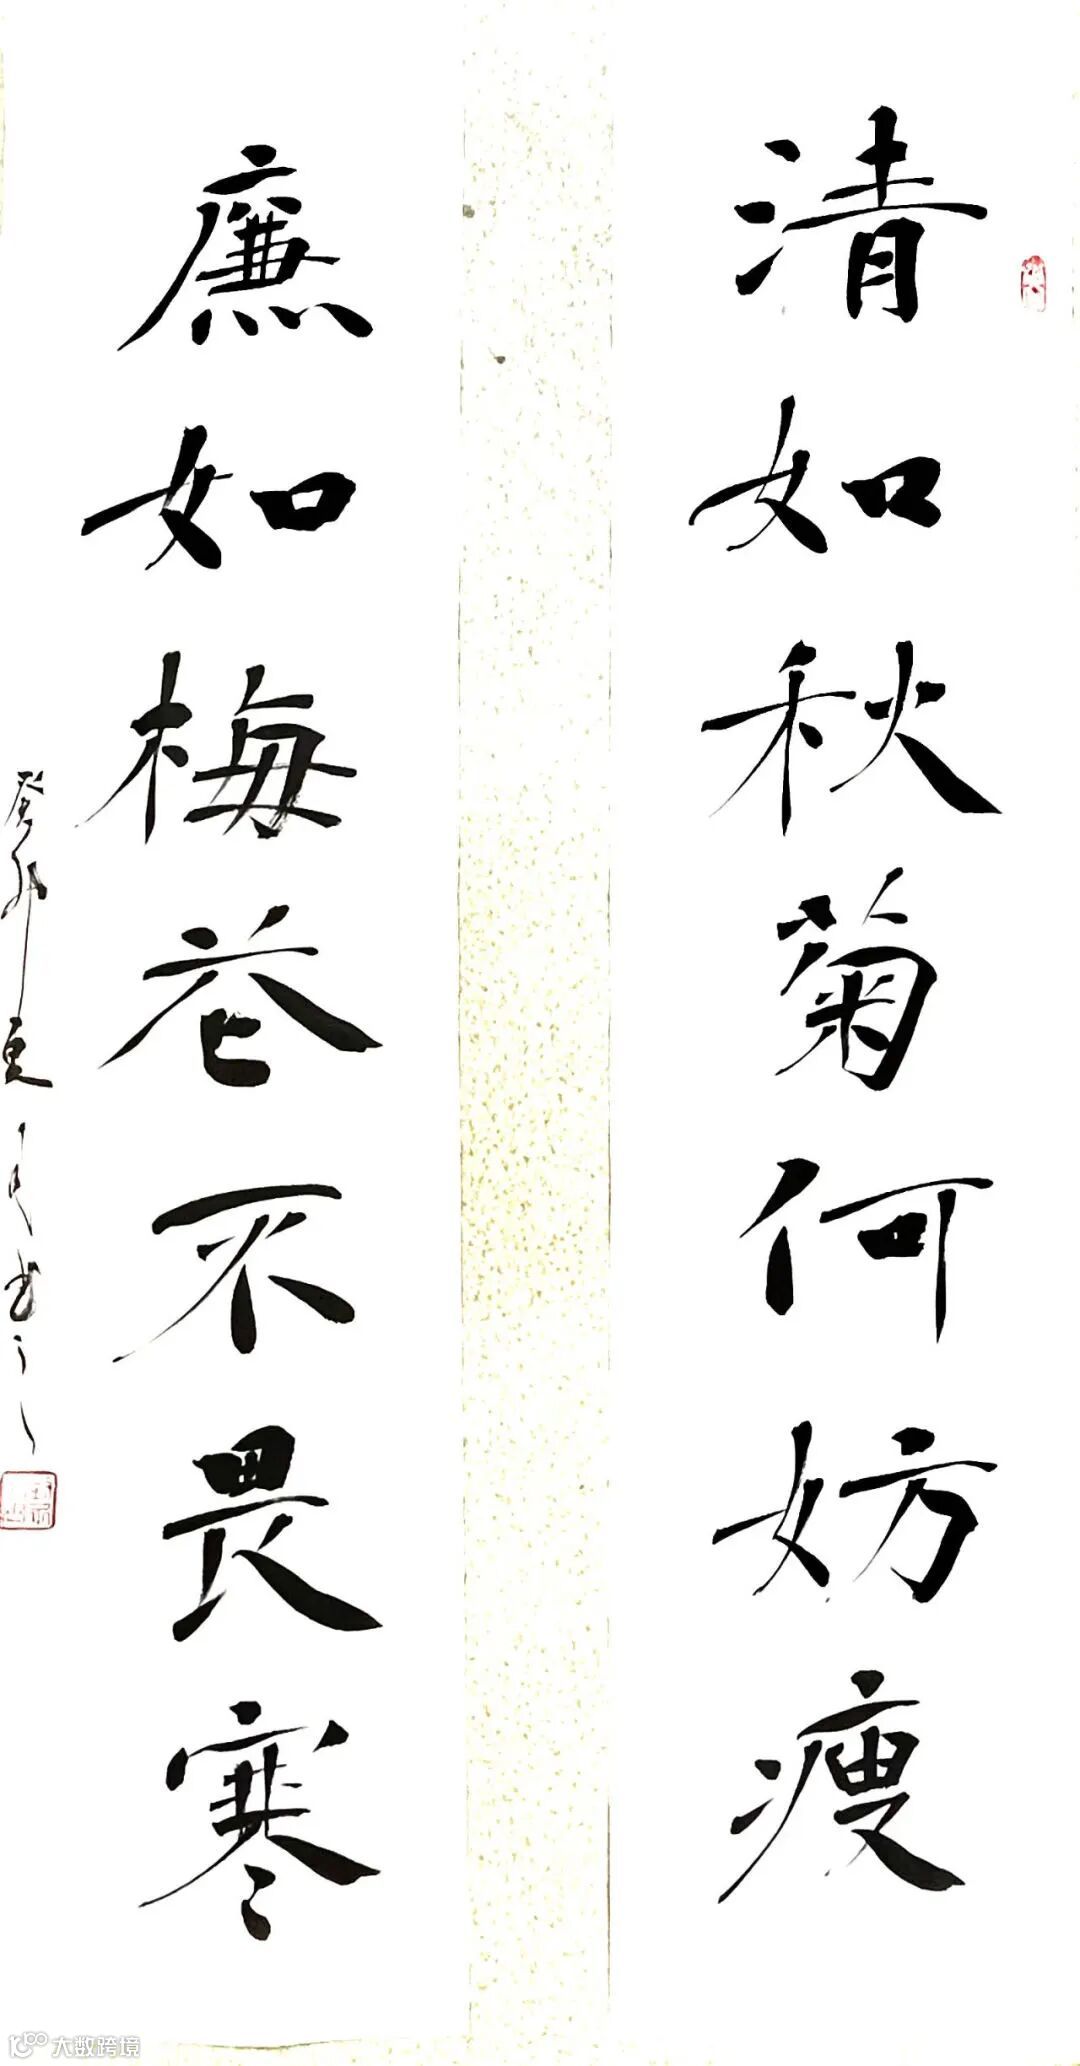 清如秋菊何妨瘦
廉如梅花不畏寒
癸卯夏
书
大数跨境